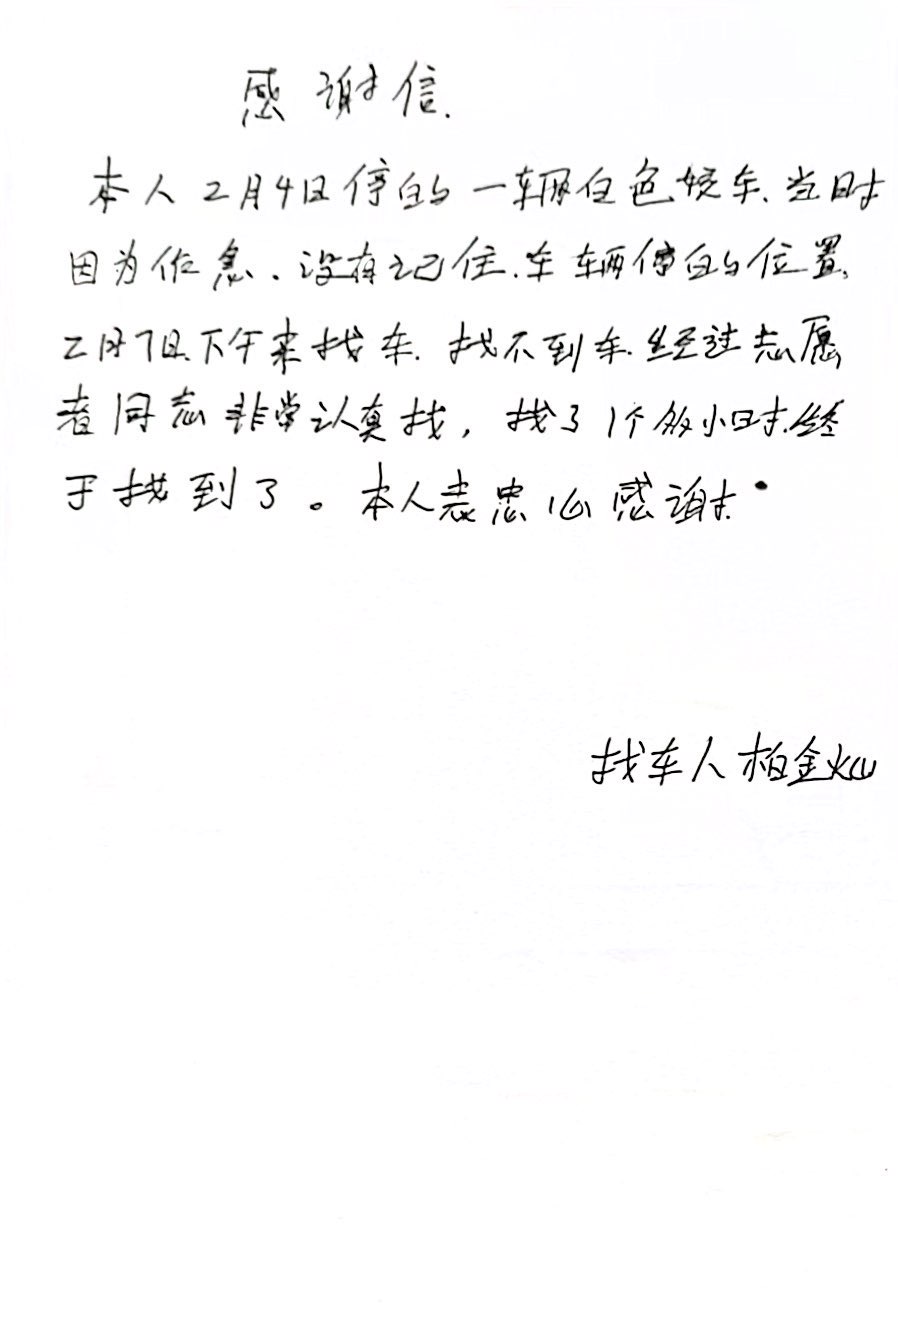 感谢信.
本人2月4日停的一辆白色轿车.当时
因为作急、没有记住.车辆停的位置,
2月7日.下午来找车.找不到车.经过志愿
者同志非常认真找,找了1个多小时.终
于找到了。本人表忠心感谢.
找车人柏金